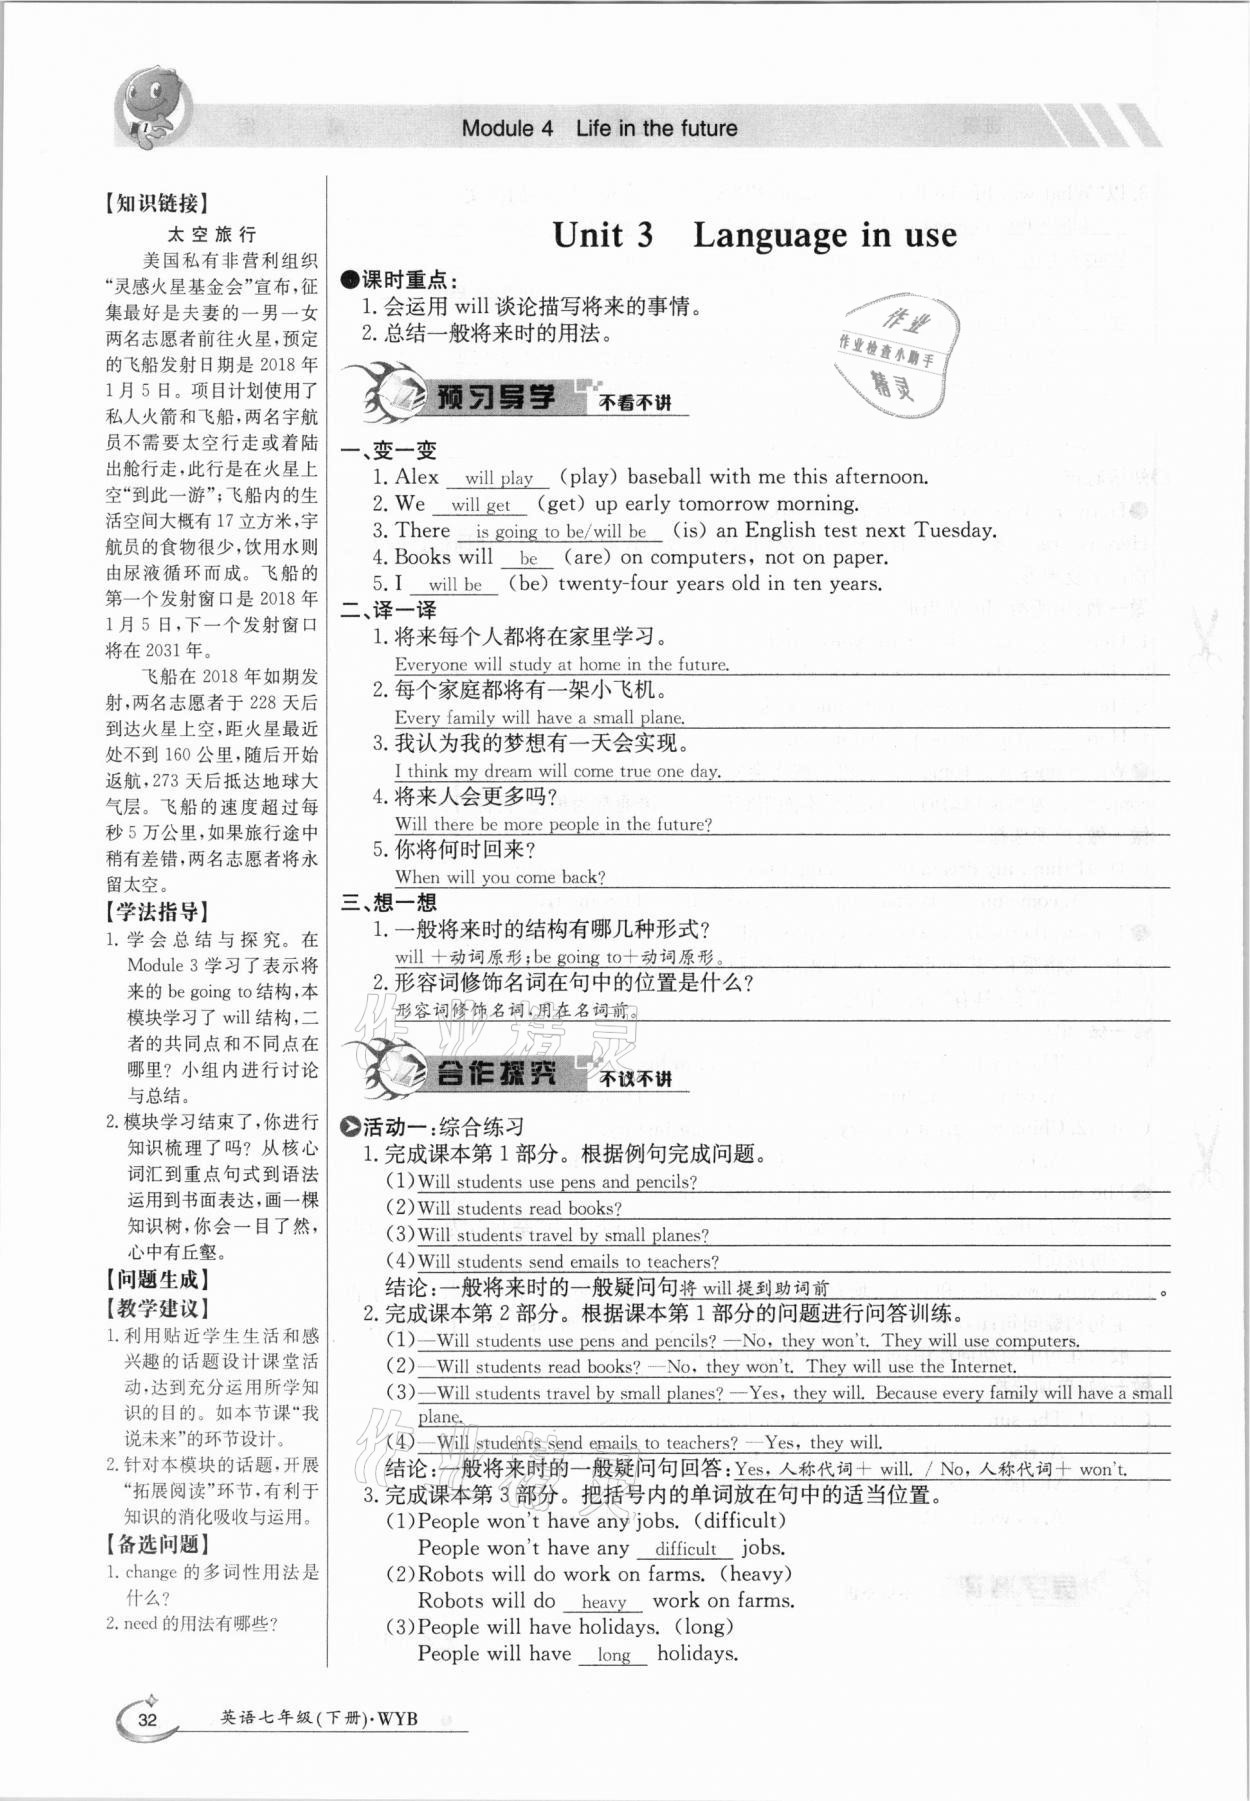 Module 4 Life in the future
【知识链接】
太空旅行
美国私有非营利组织
“灵感火星基金会”宣布,征
集最好是夫妻的一男一女
两名志愿者前往火星,预定
的飞船发射日期是 2018 年
1 月 5 日。项目计划使用了
私人火箭和飞船,两名宇航
员不需要太空行走或着陆
出舱行走,此行是在火星上
空“到此一游”;飞船内的生
活空间大概有 17 立方米,宇
航员的食物很少,饮用水则
由尿液循环而成。飞船的
第一个发射窗口是 2018 年
1 月 5 日,下一个发射窗口
将在 2031 年。
飞船在 2018 年如期发
射,两名志愿者于 228 天后
到达火星上空,距火星最近
处不到 160 公里,随后开始
返航,273 天后抵达地球大
气层。飞船的速度超过每
秒 5 万公里,如果旅行途中
稍有差错,两名志愿者将永
留太空。
【学法指导】
1. 学会总结与探究。在
Module 3 学习了表示将
来的 be going to 结构,本
模块学习了 will 结构,二
者的共同点和不同点在
哪里? 小组内进行讨论
与总结。
2. 模块学习结束了,你进行
知识梳理了吗? 从核心
词汇到重点句式到语法
运用到书面表达,画一棵
知识树,你会一目了然,
心中有丘壑。
【问题生成】
【教学建议】
1. 利用贴近学生生活和感
兴趣的话题设计课堂活
动,达到充分运用所学知
识的目的。如本节课“我
说未来”的环节设计。
2. 针对本模块的话题,开展
“拓展阅读”环节,有利于
知识的消化吸收与运用。
【备选问题】
1. change 的多词性用法是
什么?
2. need 的用法有哪些?
Unit 3 Language in use
●课时重点:
1. 会运用 will 谈论描写将来的事情。
2. 总结一般将来时的用法。
作业
作业检查小助手
精灵
预习导学 不看不讲
一、变一变
1. Alex will play (play) baseball with me this afternoon.
2. We will get (get) up early tomorrow morning.
3. There is going to be/will be (is) an English test next Tuesday.
4. Books will be (are) on computers, not on paper.
5. I will be (be) twenty-four years old in ten years.
二、译一译
1. 将来每个人都将在家里学习。
Everyone will study at home in the future.
2. 每个家庭都将有一架小飞机。
Every family will have a small plane.
3. 我认为我的梦想有一天会实现。
I think my dream will come true one day.
4. 将来人会更多吗?
Will there be more people in the future?
5. 你将何时回来?
When will you come back?
三、想一想
1. 一般将来时的结构有哪几种形式?
will +动词原形;be going to+动词原形。
2. 形容词修饰名词在句中的位置是什么?
形容词修饰名词,用在名词前。
作业精灵
合作探究 不议不讲
活动一:综合练习
1. 完成课本第 1 部分。根据例句完成问题。
(1)Will students use pens and pencils?
(2)Will students read books?
(3)Will students travel by small planes?
(4)Will students send emails to teachers?
结论:一般将来时的一般疑问句将 will 提到助词前。
2. 完成课本第 2 部分。根据课本第 1 部分的问题进行问答训练。
(1)—Will students use pens and pencils? —No, they won't. They will use computers.
(2)—Will students read books? —No, they won't. They will use the Internet.
(3)—Will students travel by small planes? —Yes, they will. Because every family will have a small
plane.
(4)—Will students send emails to teachers? —Yes, they will.
结论:一般将来时的一般疑问句回答:Yes, 人称代词+ will. / No, 人称代词+ won't.
作业精灵
3. 完成课本第 3 部分。把括号内的单词放在句中的适当位置。
(1)People won't have any jobs. (difficult)
People won't have any difficult jobs.
(2)Robots will do work on farms. (heavy)
Robots will do heavy work on farms.
(3)People will have holidays. (long)
People will have long holidays.
32 英语七年级(下册)·WYB